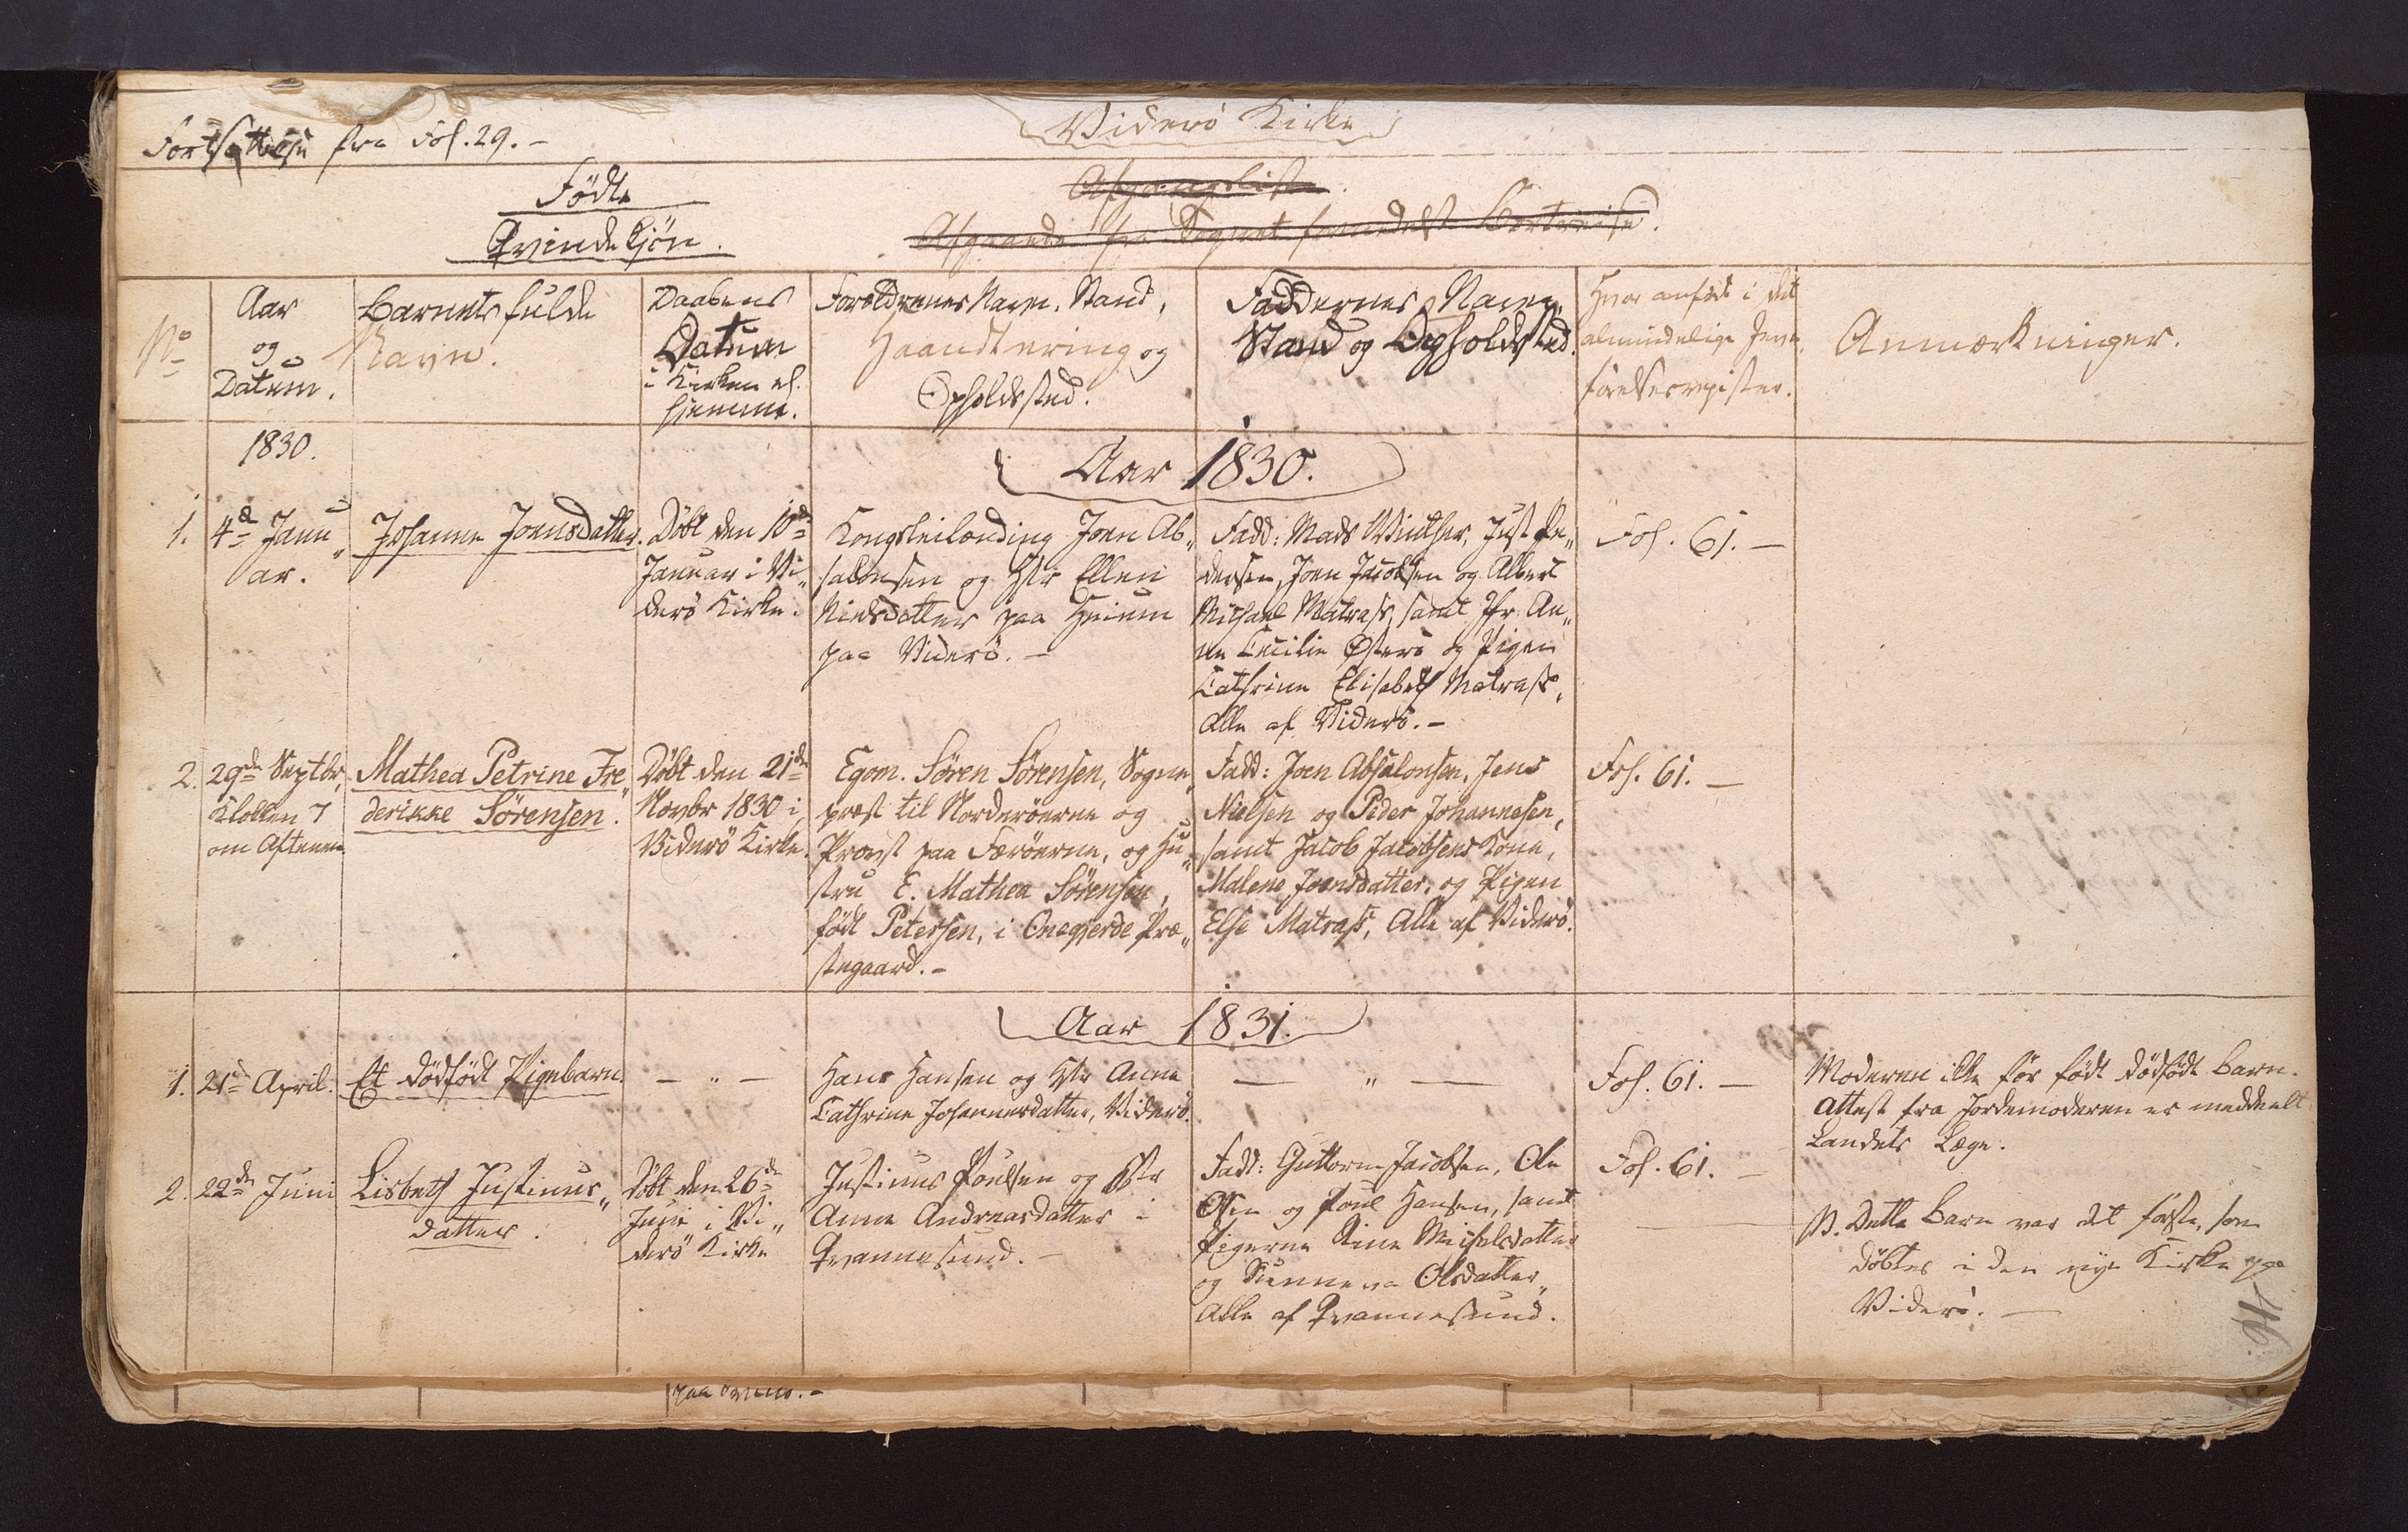 Fortsættelse fra Fol. 29. -
Viderö Kirke
Födte
Qvindekjön.
Afgangsliste.
Afgaaede fra Sognet formedelst Bortreise.
No
Aar
og
Datum.
Barnets fulde
Navn.
Daabens
Datum
i Kirken el.
hjemme.
Forældrenes Navn, Stand,
Haandtering og
Opholdssted.
Faddernes Navn,
Stand og Opholdssted.
Hvor anført i det
almindelige Jevn-
førelsesregister.
Anmærkninger.
1830.
Aar 1830.
1.
4de Janu„
ar.
Johanne Joensdatter.
Döbt den 10de
Januar i Vi„
derö Kirke.
Kongsleilænding Joen Ab„
salonsen og Hstr Ellen
Nielsdatter paa
paa Viderö. -
Fadd: Mads Winther, Just Pe„
dersen, Joen Jacobsen og Albert
Michael Matrass, samt Jfr. An„
ne Cecilie Østerö og Pigen
Cathrine Elisabeth Matrass,
Alle af Viderö. -
Fol. 61. -
2.
29de Septbr,
Klokken 7
om Aftenen
Mathea Petrine Fre„
derikke Sörensen.
Döbt den 21de
Novbr 1830 i
Viderö Kirke.
Egom. Sören Sörensen, Sogne„
præst til Norderöerne og
Provst paa Færöerne, og Hu„
stru E. Mathea Sörensen,
födt Petersen, i Onegjerde Præ„
stegaard. -
Fadd: Joen Absalonsen, Jens
Nielsen og Peder Johannesen,
samt Jacob Jacobsens Kone,
Malene Joensdatter, og Pigen
Else Matrass, Alle af Viderö.
Fol. 61. -
Aar 1831.
1.
21de April.
Et dödfödt Pigebarn.
- „ -
Hans Hansen og Hstr Anne
Cathrine Johannesdatter, Viderö.
- „ -
Fol. 61. -
Moderen ikke för födt dödfödt Barn.
Attest fra Jordemoderen er meddeelt
Landets Læge.
2.
22de Juni
Lisbeth Justinus„
datter.
Döbt den 26de
Juni i Vi„
derö Kirke
Justinus Poulsen og Hstr
Anna Andreasdatter i
Qvannesund. -
Fadd: Guttorm Jacobsen, Ole
Olsen og Poul Hansen, samt
Pigerne Sine Michelsdatter
og Sunneva Olsdatter„
Alle af Qvannesund.
Fol. 61. -
Dette Barn var det förste, som
döbtes i den nye Kirke paa
Viderö. -